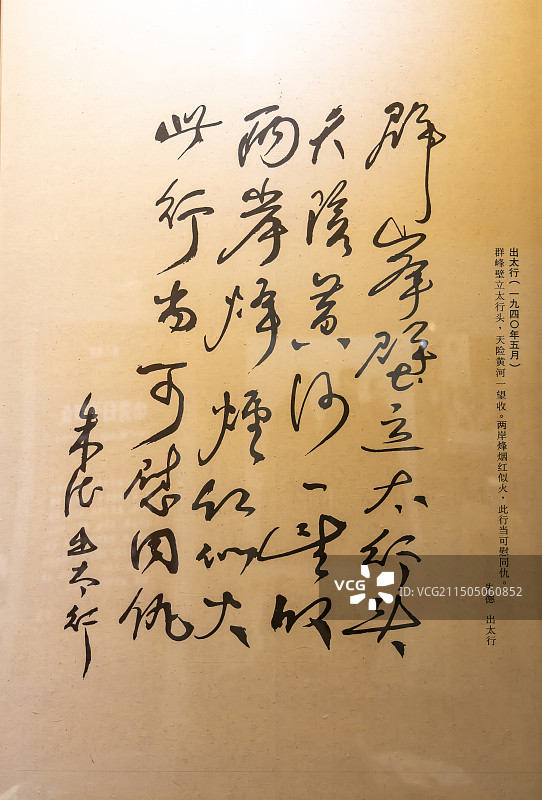 出太行（一九四〇年五月）
群峰壁立太行头，天险黄河一望收。两岸烽烟红似火，此行当可慰同仇。
朱德 出太行
群峰壁立太行头
天险黄河一望收
两岸烽烟红似火
此行当可慰同仇
朱德出太行
VCG
ID: VCG211505060852